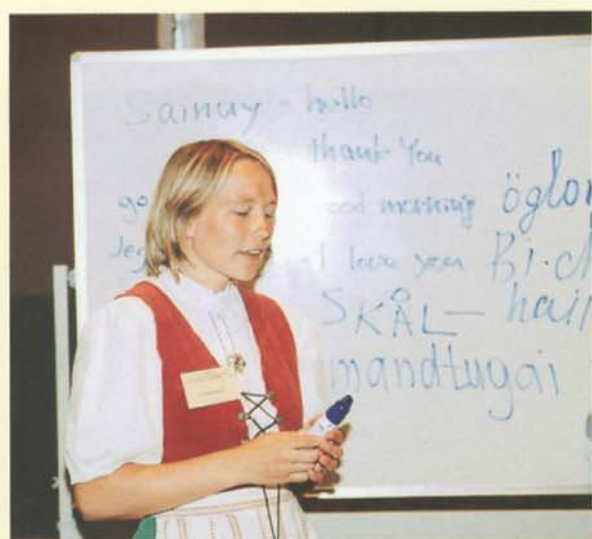 Sainuy - hello
thank You
go ood morning öglo
Jeg I love you Bi
SKÅL - hai
mandtugai